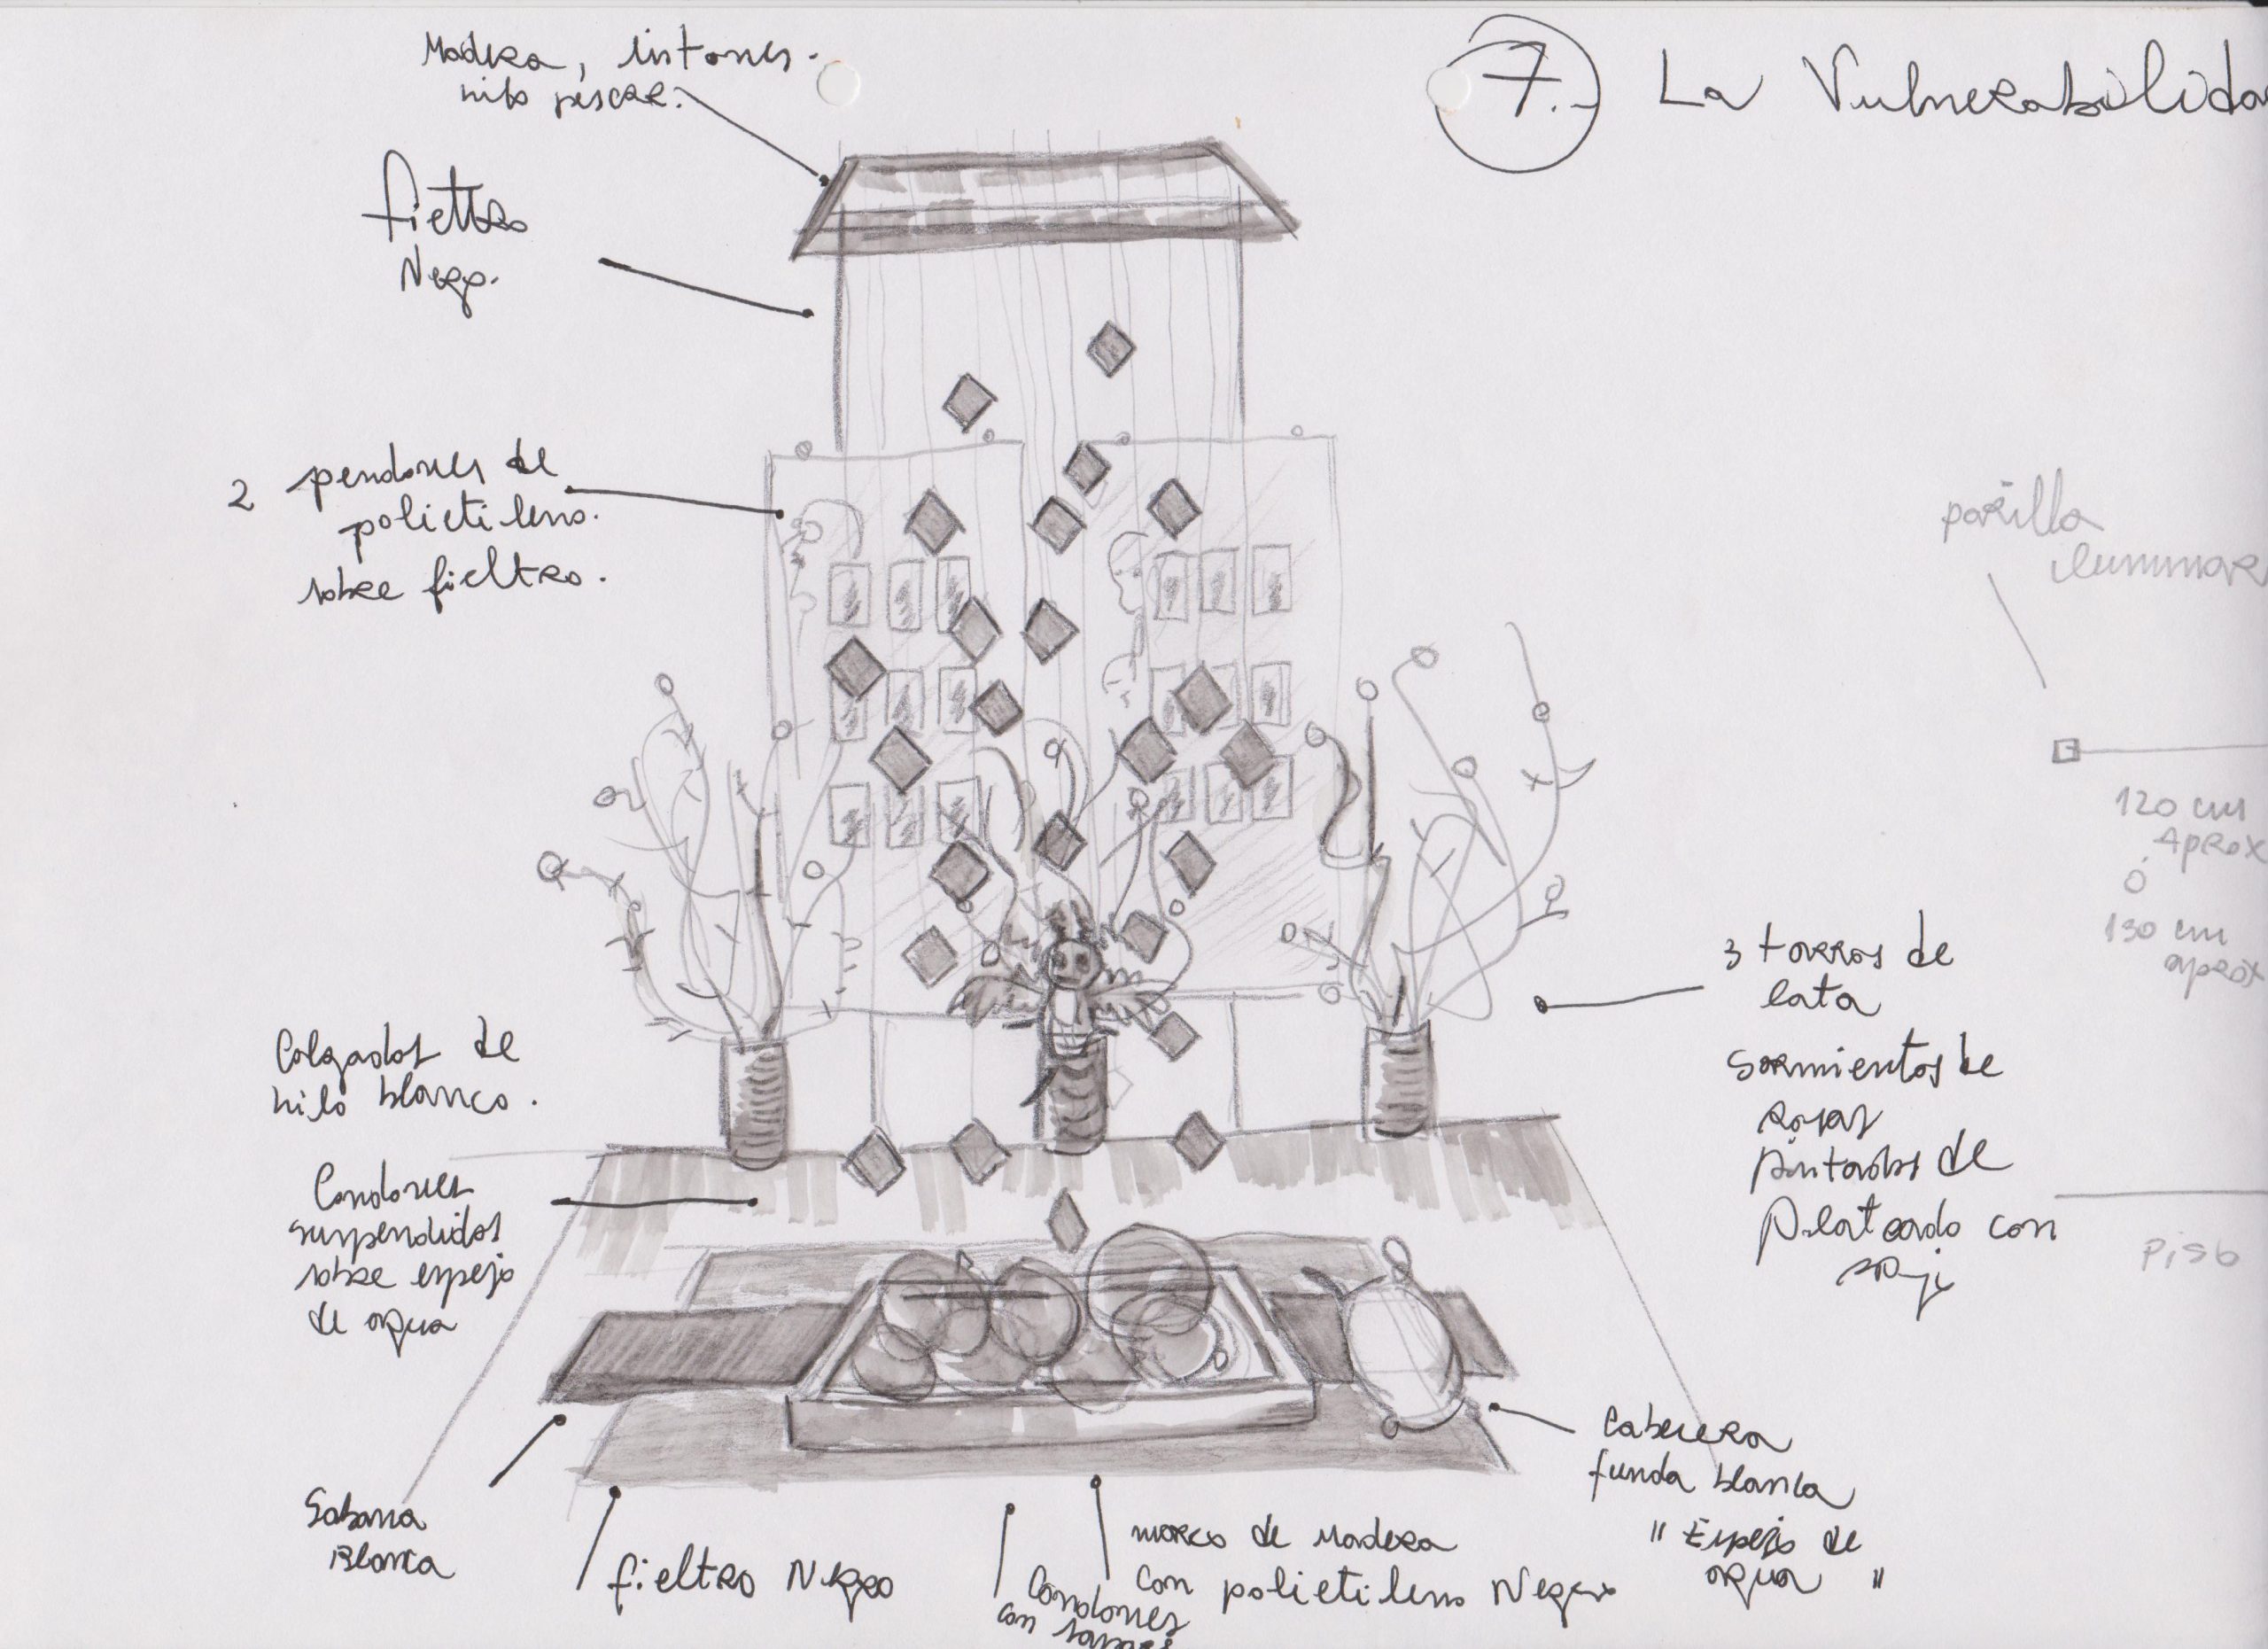 7.- La Vulnerabilida
Madera, listones.
hilo pescar.
fieltro
Negro.
2 pendones de
polietileno.
sobre fieltro.
parilla
iluminar
120 cm
Aprox
ó
130 cm
aprox
3 tarros de
lata
Sarmientos de
rosas
pintados de
Plateado con
Piso
Colgados de
hilo blanco.
Condones
suspendidos
sobre espejo
de agua
Sabana
Blanca
fieltro Negro
Condones
con
marco de Madera
con polietileno Negro
Cabecera
funda blanca
"Espejo de
agua"